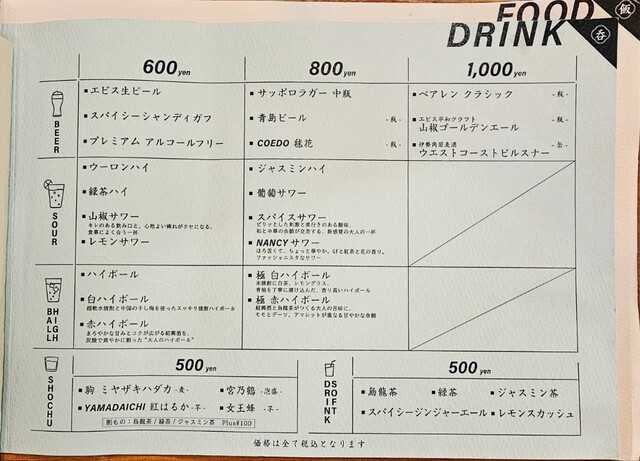 FOOD 飯
DRINK 呑
600 yen
800 yen
1,000 yen
BEER
■ エビス生ビール
■ スパイシーシャンディガフ
■ プレミアム アルコールフリー
■ サッポロラガー 中瓶
■ 青島ビール -瓶-
■ COEDO 毬花 -瓶-
■ ベアレン クラシック -瓶-
■ エビス平和クラフト
山椒ゴールデンエール -瓶-
■ 伊勢角屋麦酒
ウエストコーストピルスナー -缶-
SOUR
■ ウーロンハイ
■ 緑茶ハイ
■ 山椒サワー
キレのある飲み口と、心地よい痺れがクセになる、
食事によく合う一杯
■ レモンサワー
■ ジャスミンハイ
■ 葡萄サワー
■ スパイスサワー
ピリッとした刺激と奥行きのある酸味、
和と中華の余韻が交差する、新感覚の大人の一杯
■ NANCYサワー
ほろ苦くて、ちょっと華やか。ŒŸと紅茶と花の香り。
ファッショニスタなサワー
HIGH BALL
■ ハイボール
■ 白ハイボール
超軟水焼酎と中国の干し梅を使ったスッキリ焼酎ハイボール
■ 赤ハイボール
まろやかな甘みとコクが広がる紹興酒を、
炭酸で爽やかに割った"大人のハイボール"
■ 極 白ハイボール
米焼酎に白茶、レモングラス、
青柚を丁寧に漬け込んだ、香り高いハイボール
■ 極 赤ハイボール
紹興酒と烏龍茶がつくる大人の苦味に、
モモとデーツ、アマレットが重なる甘やかな余韻
SHOCHU
500 yen
■ 駒 ミヤザキハダカ -麦-
■ 宮乃鶴 -泡盛-
■ YAMADAICHI 紅はるか -芋-
■ 女王蜂 -芋-
割もの：烏龍茶 / 緑茶 / ジャスミン茶 Plus¥100
SOFT DRINK
500 yen
■ 烏龍茶
■ 緑茶
■ ジャスミン茶
■ スパイシージンジャーエール
■ レモンスカッシュ
価格は全て税込となります